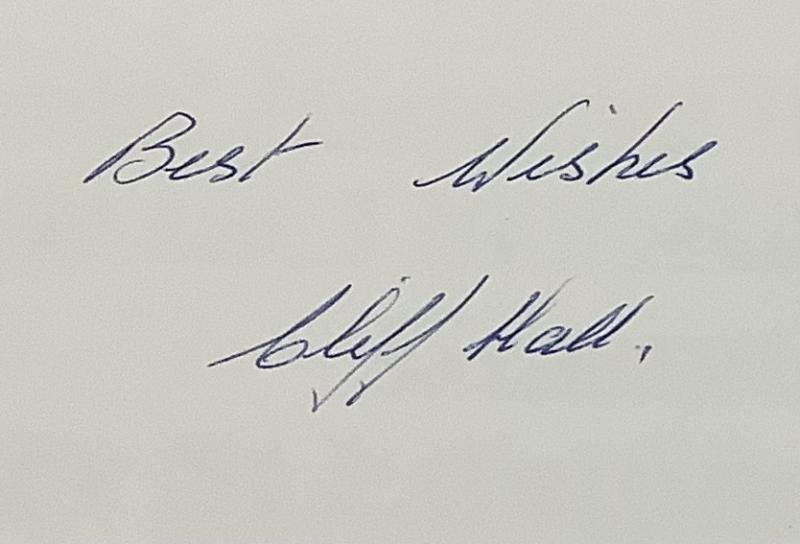 Best Wishes
Cliff Hall.